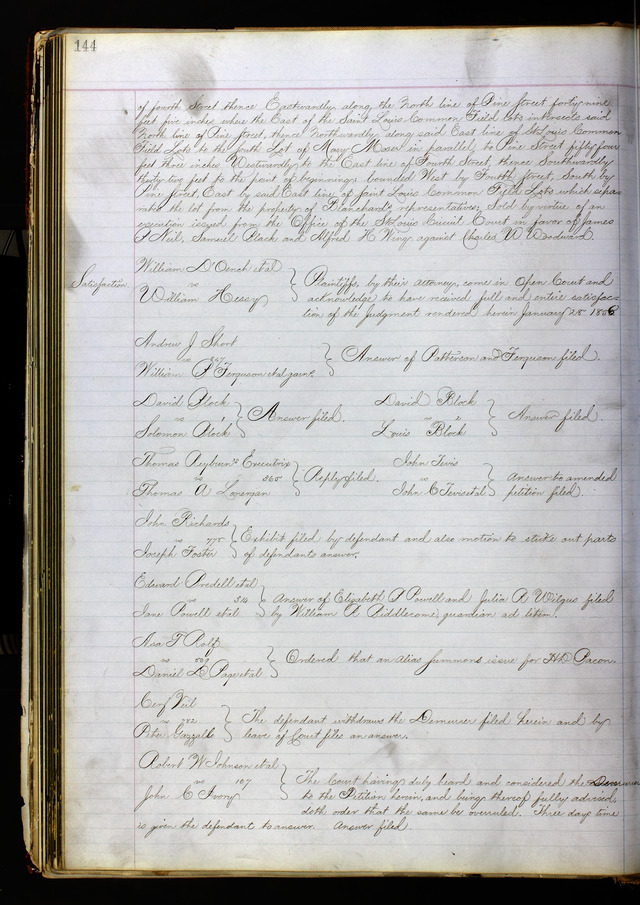 144
of fourth Street thence Eastwardly along the North line of Pine Street forty nine
feet five inches where the East of the Saint Louis Common Field Lots intersects said
North line of Pine street, thence Northwardly along said East line of St Louis Common
Field Lots to the South Lot of Mary in parallel to Pine Street fifty four
feet three inches Westwardly to the East line of Fourth Street, thence Southwardly
thirty two feet to the point of beginning; bounded West by Fourth Street, South by
Pine street, East by said East line of Saint Louis Common Field Lots which sepa-
rates the lot from the property of Blanchard's representatives, Sold by virtue of an
execution issued from the Office of the St Louis Circuit Court in favor of James
S Neil, Samuel Black and Alfred H Wing against Charles W Woodward.
William D'Oench et al
Satisfaction vs
William Hessy
Plaintiffs, by their Attorney, come in Open Court and
acknowledge to have received full and entire satisfac-
tion of the Judgment rendered herein January 28 1856
Andrew J Short
vs 247
William P Ferguson et al garns.
Answer of Patterson and Ferguson filed.
David Block
vs
Solomon Block
Answer filed.
David Block
vs
Louis Block
Answer filed.
Thomas Reyburn's Executrix
vs 365
Thomas A
Reply filed.
John Tevis
vs
John C Tevis et al
Answer to amended
petition filed.
John Richards
vs 775
Joseph Foster
Exhibit filed by defendant and also motion to strike out parts
of defendants answer.
Edward Bredell et al
vs 514
Jane Powell et al
Answer of Elizabeth P Powell and Julia A Wilgus filed
by William R Biddlecome, guardian ad litem.
Asa T Rolf
vs 509
Daniel D Page et al
Ordered that an alias Summons issue for H D Bacon.
vs 282
Peter Gazzallo
The defendant withdraws the Demurrer filed herein and by
leave of Court files an answer.
Robert W Johnson et al
vs 167
John C Ivory
The Court having duly heard and considered the
to the Petition herein, and being thereof fully advised,
doth order that the same be overruled. Three days time
is given the defendant to answer. Answer filed.